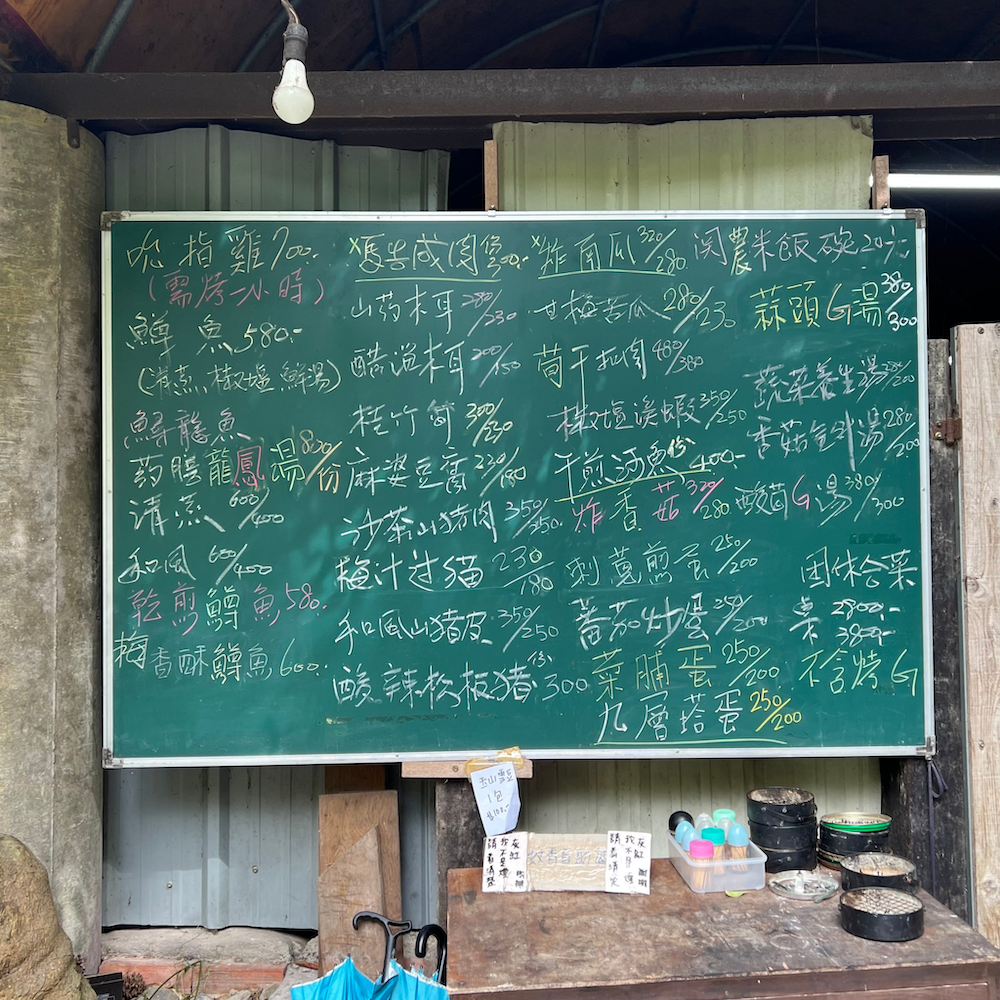 吮指雞700.
(需烤一小時)
鱒魚580.-
(清蒸、椒塩、鮮湯)
鱘龍魚
药膳龍鳳湯800/份
清蒸600/400
和風600/400
乾煎鱒魚580.
梅香酥鱒魚600.
x馬告咸肉煲
山药木耳280/230
醋溜木耳200/150
桂竹筍300/250
麻婆豆腐220/180
沙茶山猪肉350/250
梅汁过猫230/180
和風山猪皮350/250
酸辣松板猪份300
x炸南瓜320/280
甘梅苦瓜280/230
筍干扣肉480/380
椒塩溪蝦350/250
干煎河魚份400.-
炸香菇320/280
刺蔥煎蛋250/200
蕃茄炒蛋250/200
菜脯蛋250/200
九層塔蛋250/200
関農米飯碗20元
蒜頭G湯380/300
蔬菜養生湯280/200
香菇金針湯280/200
酸菌G湯380/300
团体合菜
桌2800.-
3800.-
不含烤G
1包
$100.-